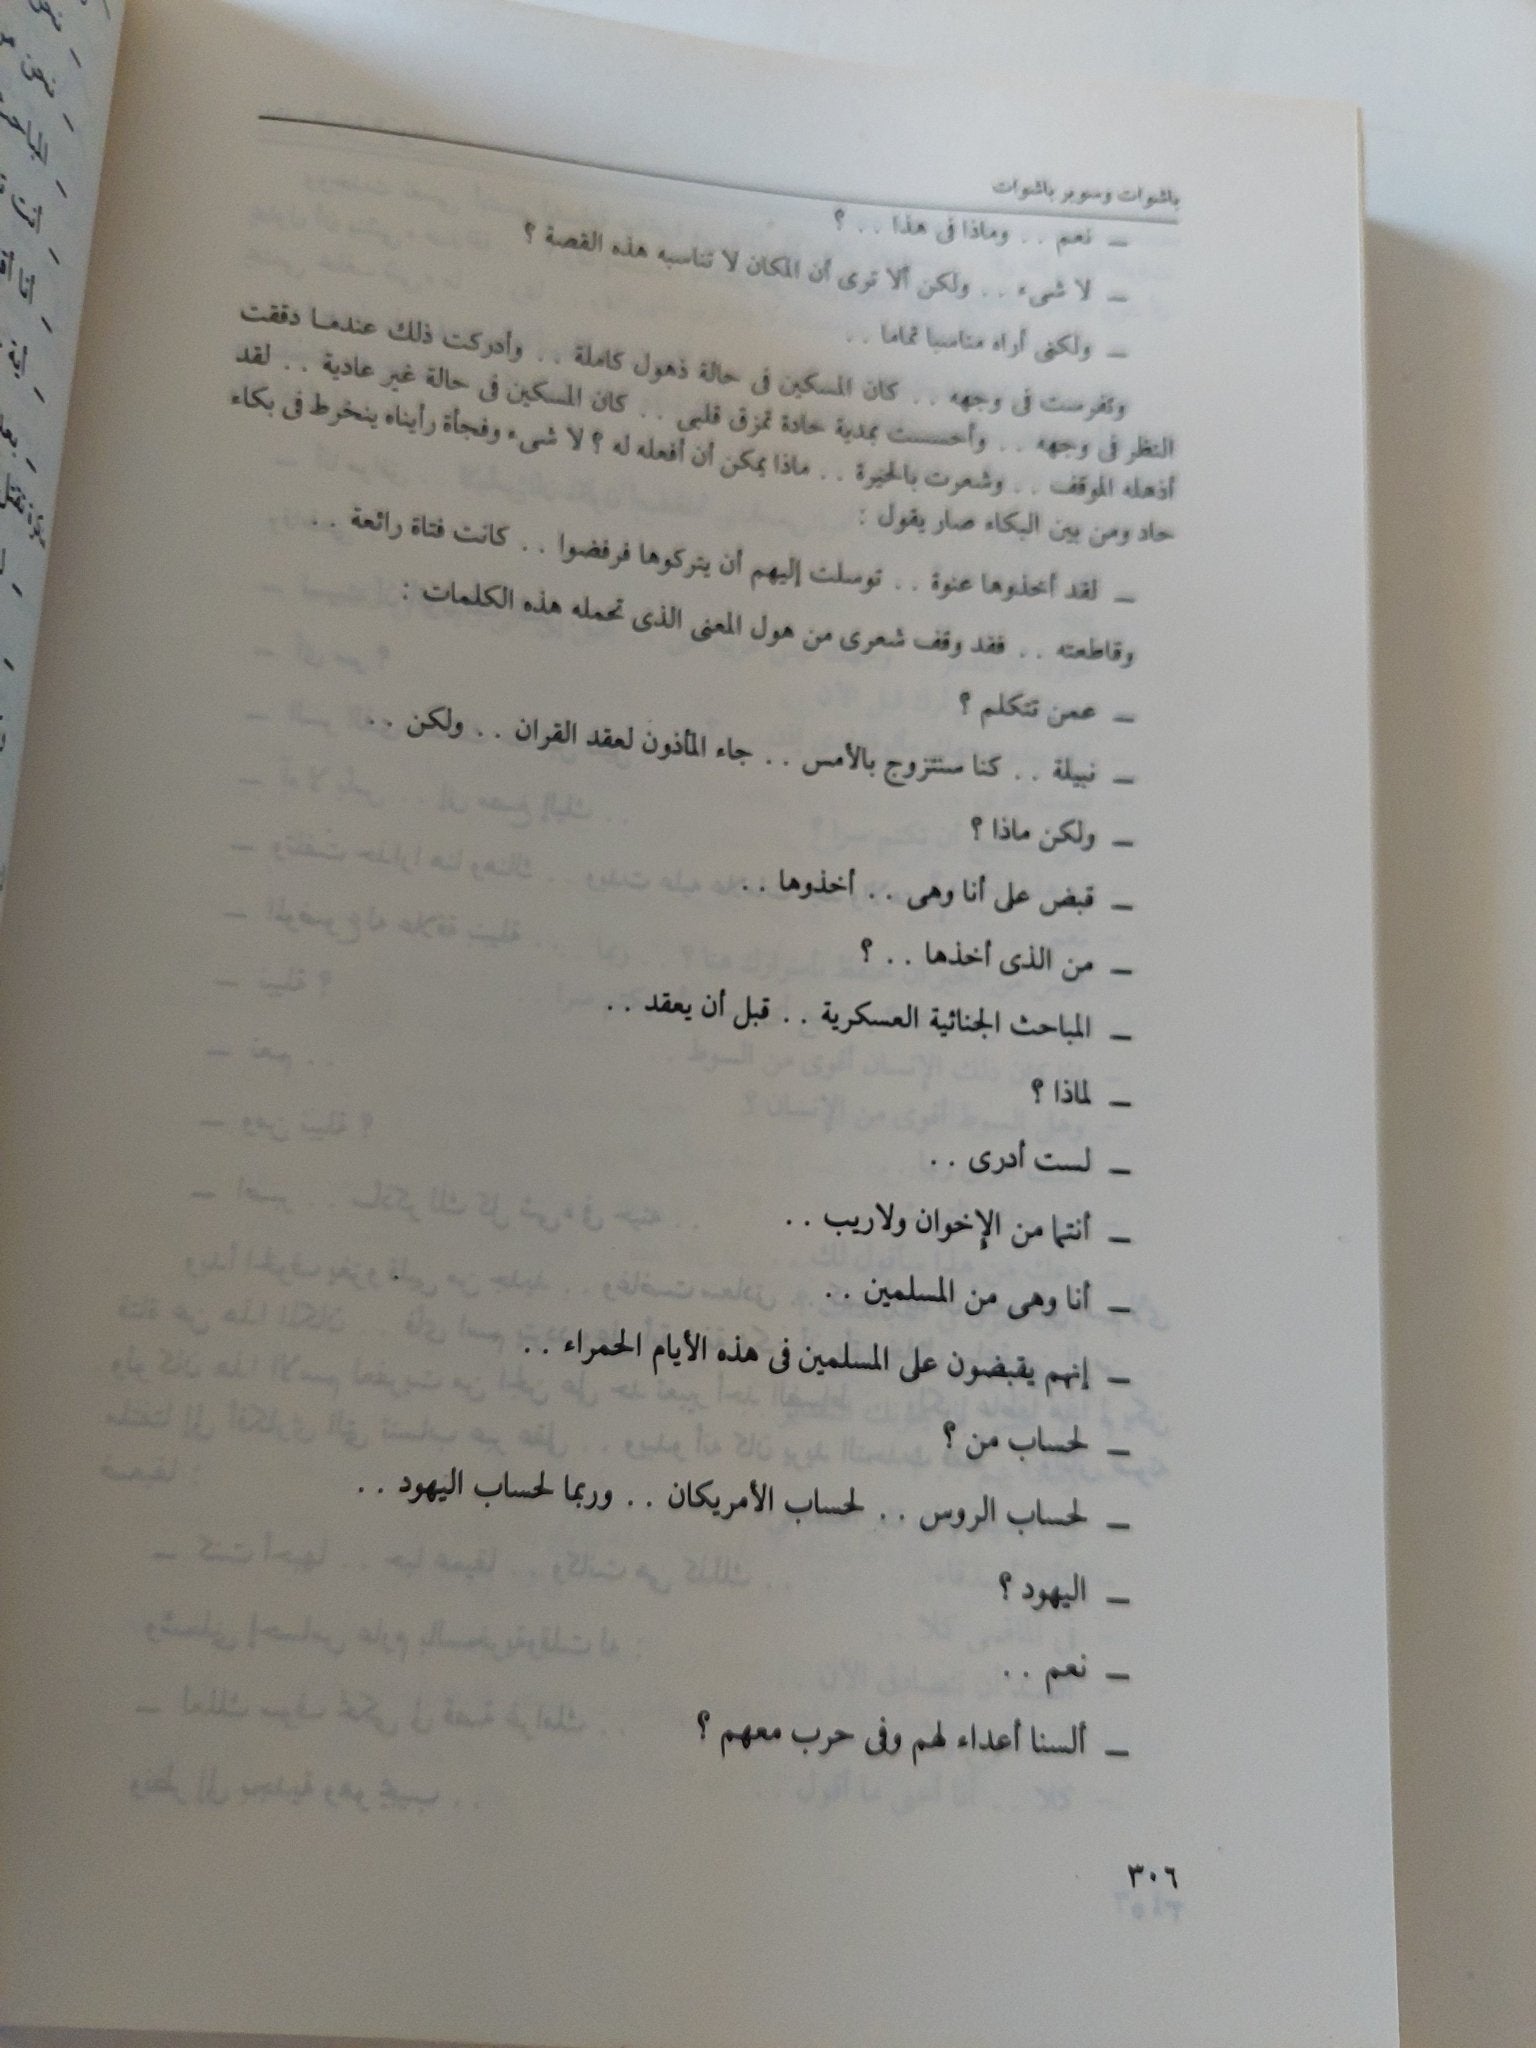 باشوات وسوبر باشوات
ــ نعم . . وماذا فى هذا . . ؟
ــ لا شىء . . ولكن ألا ترى أن المكان لا تناسبه هذه القصة ؟
ــ ولكنى أراه مناسبا تماما . .
وتفرست فى وجهه . . كان المسكين فى حالة ذهول كاملة . . وأدركت ذلك عندما دققت
النظر فى وجهه . . وأحسست بمدية حادة تمزق قلبى . . كان المسكين فى حالة غير عادية . . لقد
أذهله الموقف . . وشعرت بالحيرة . . ماذا يمكن أن أفعله له ؟ لا شىء وفجأة رأيناه ينخرط فى بكاء
حاد ومن بين البكاء صار يقول :
ــ لقد أخذوها عنوة . . توسلت إليهم أن يتركوها فرفضوا . . كانت فتاة رائعة . .
وقاطعته . . فقد وقف شعرى من هول المعنى الذى تحمله هذه الكلمات :
ــ عمن تتكلم ؟
ــ نبيلة . . كنا سنتزوج بالأمس . . جاء المأذون لعقد القران . . ولكن . .
ــ ولكن ماذا ؟
ــ قبض على أنا وهى . . أخذوها . .
ــ من الذى أخذها . . ؟
ــ المباحث الجنائية العسكرية . . قبل أن يعقد . .
ــ لماذا ؟
ــ لست أدرى . .
ــ أنتما من الإخوان ولاريب . .
ــ أنا وهى من المسلمين . .
ــ إنهم يقبضون على المسلمين فى هذه الأيام الحمراء . .
ــ لحساب من ؟
ــ لحساب الروس . . لحساب الأمريكان . . وربما لحساب اليهود . .
ــ اليهود ؟
ــ نعم . .
ــ ألسنا أعداء لهم وفى حرب معهم ؟
٣٠٦